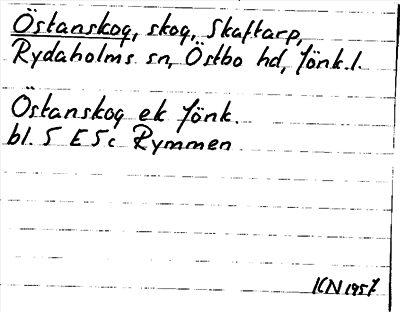 Östanskog, skog, Skaftarp,
Rydaholms sn, Östbo hd, Jönk.l.
Östanskog ek Jönk.
bl. 5 E 5c Rymmen
KN 1957